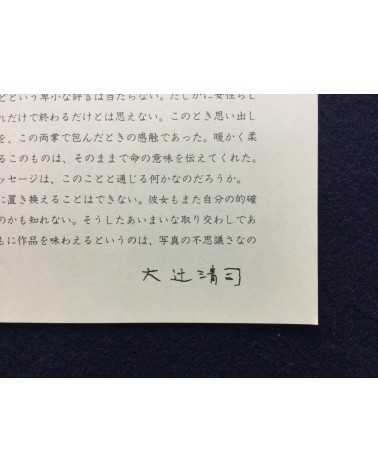 という卑小な評言は当たらない。たしかに女性らし
れだけで終わるだけとは思えない。このとき思い出し
を、この両掌で包んだときの感触であった。暖かく柔
るこのものは、そのままで命の意味を伝えてくれた。
ッセージは、このことと通じる何かなのだろうか。
に置き換えることはできない。彼女もまた自分の的確
のかも知れない。そうしたあいまいな取り交わしであ
もに作品を味わえるというのは、写真の不思議さなの
大辻清司